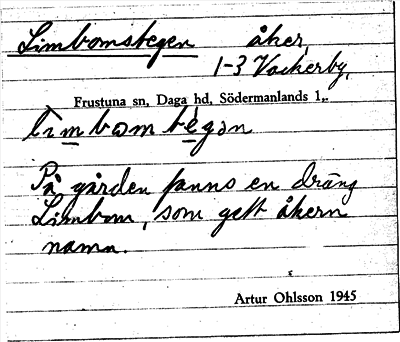 Limbomstegen åker,
1-3 Vackerby,
Frustuna sn, Daga hd, Södermanlands l.,
På gården fanns en dräng
Limbom, som gett åkern
namn.
Artur Ohlsson 1945